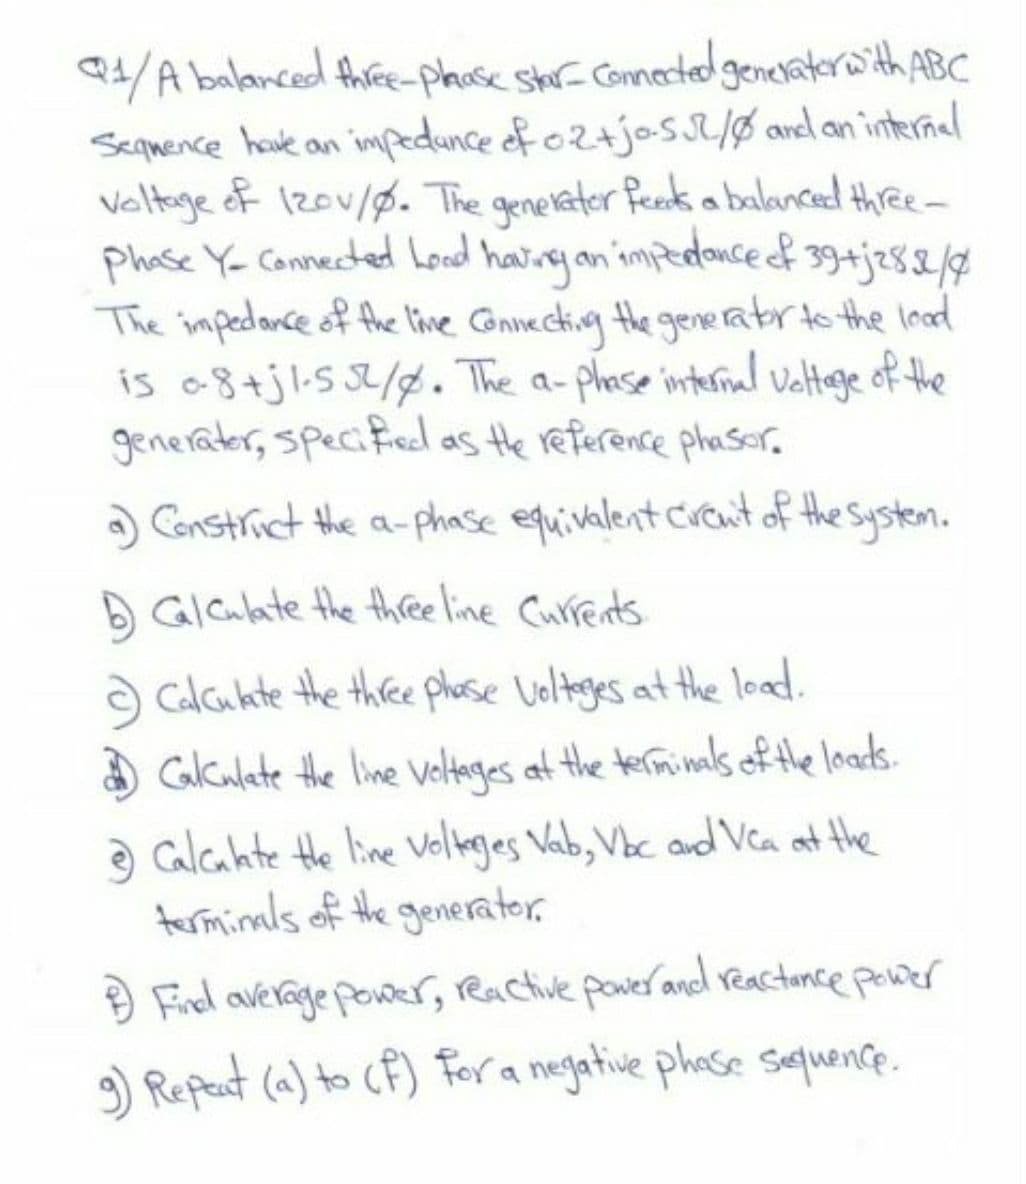 Q1/ A balanced three-phase star-Connected generator with ABC
Sequence have an impedance of 02+j0.5 Ω/Ø and an internal
voltage of 120V/Ø. The generator feeds a balanced three-
phase Y- Connected Load having an impedance of 39+j28Ω/Ø
The impedance of the line Connecting the generator to the load
is 0.8+j1.5 Ω/Ø. The a-phase internal voltage of the
generator, specified as the reference phasor.
a) Construct the a-phase equivalent circuit of the system.
b) Calculate the three line Currents.
c) Calculate the three phase Voltages at the load.
d) Calculate the line voltages at the terminals of the loads.
e) Calculate the line voltages Vab, Vbc and VCa at the
terminals of the generator.
f) Find average power, reactive power and reactance power
g) Repeat (a) to (f) for a negative phase sequence.